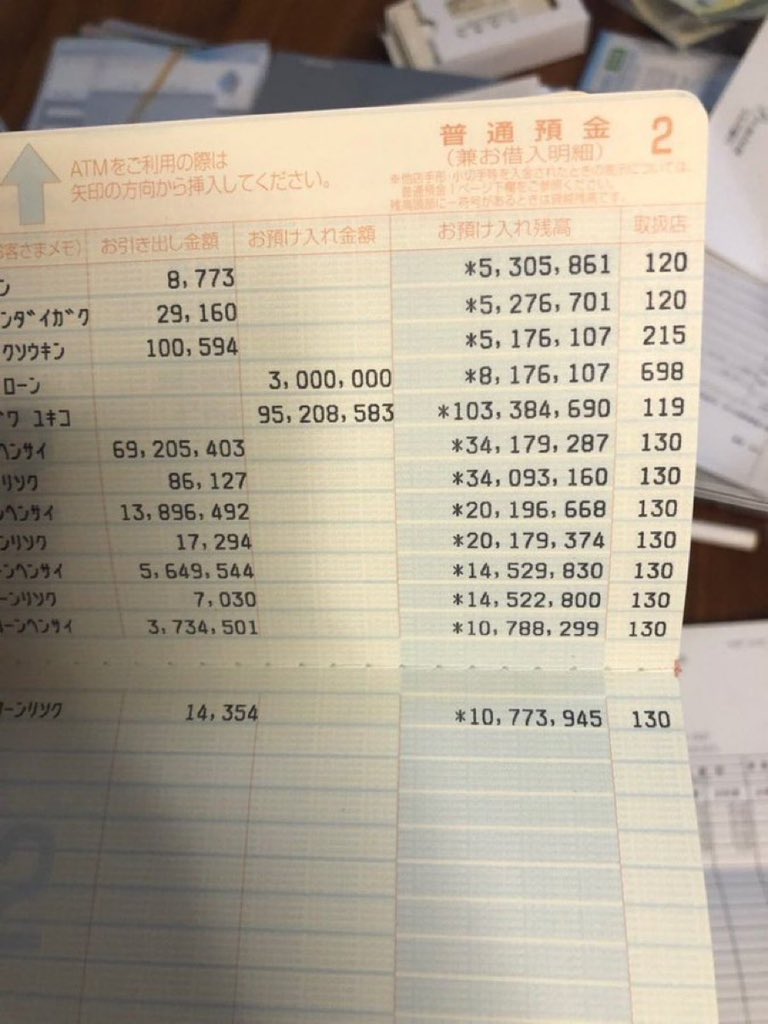 普通預金 2
(兼お借入明細)
ATMをご利用の際は
矢印の方向から挿入してください。
※他店手形・小切手等を入金されたときの表示については、
普通預金1ページ下欄をご参照ください。
残高頭部に−符号があるときは貸越残高です。
お客さまメモ) お引き出し金額 お預け入れ金額 お預け入れ残高 取扱店
ン 8,773 *5,305,861 120
ンダイガク 29,160 *5,276,701 120
クソウキン 100,594 *5,176,107 215
ローン 3,000,000 *8,176,107 698
ワ ユキコ 95,208,583 *103,384,690 119
ヘンサイ 69,205,403 *34,179,287 130
リソク 86,127 *34,093,160 130
ンヘンサイ 13,896,492 *20,196,668 130
ンリソク 17,294 *20,179,374 130
ーンヘンサイ 5,649,544 *14,529,830 130
ーンリソク 7,030 *14,522,800 130
ローンヘンサイ 3,734,501 *10,788,299 130
ローンリソク 14,354 *10,773,945 130